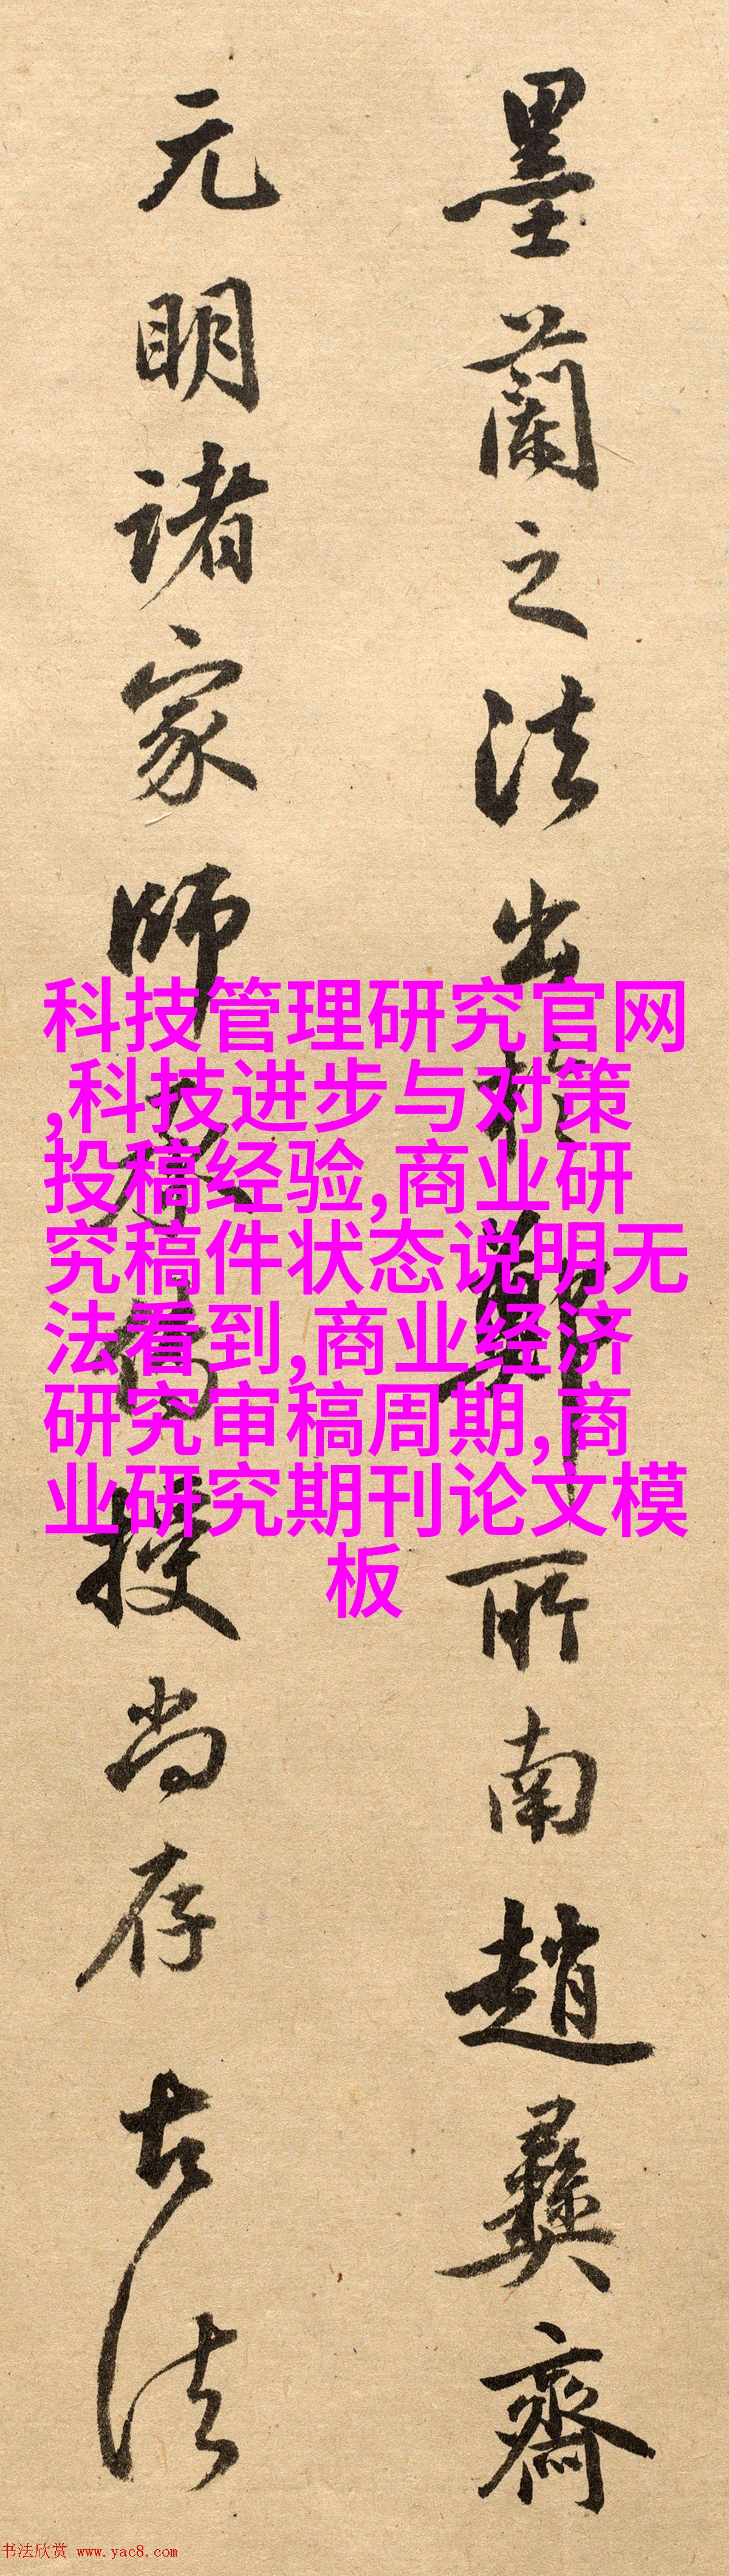 墨蘭之法出於鄭所南趙彝齋
元明诸家師友傳授尚存古法
科技管理研究官网
,科技进步与对策
投稿经验,商业研
究稿件状态说明无
法看到,商业经济
研究审稿周期,商
业研究期刊论文模
板
书法欣赏 www.yac8.com